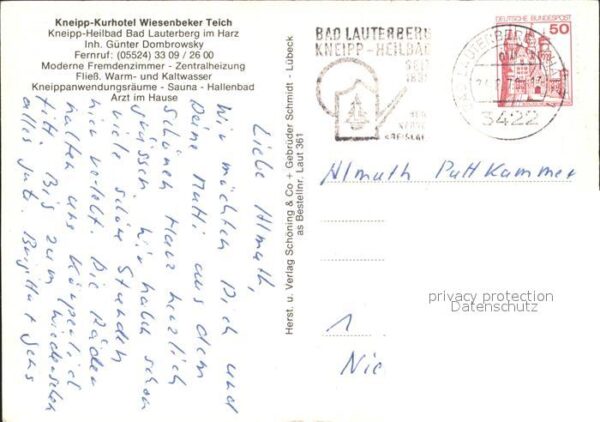 Kneipp-Kurhotel Wiesenbeker Teich
Kneipp-Heilbad Bad Lauterberg im Harz
Inh. Günter Dombrowsky
Fernruf: (05524) 33 09 / 26 00
Moderne Fremdenzimmer - Zentralheizung
Fließ. Warm- und Kaltwasser
Kneippanwendungsräume - Sauna - Hallenbad
Arzt im Hause
Liebe Almath,
Wir möchten Dich und
Deine Mutti aus dem
schönen Harz herzlich
grüssen. Wir haben schon
viele schöne Stunden
hier verlebt. Die Bäder
halten uns körperlich
fit. Bis zum Wiedersehen
alles Gute. Brigitte + Jens
Herst. u. Verlag Schöning & Co + Gebrüder Schmidt - Lübeck
as Bestellnr. Laut 361
BAD LAUTERBERG
KNEIPP-HEILBAD
SEIT
DEUTSCHE BUNDESPOST
50
BAD LAUTERBERG
3422
Almath Puttkammer
1
Nie
privacy protection
Datenschutz